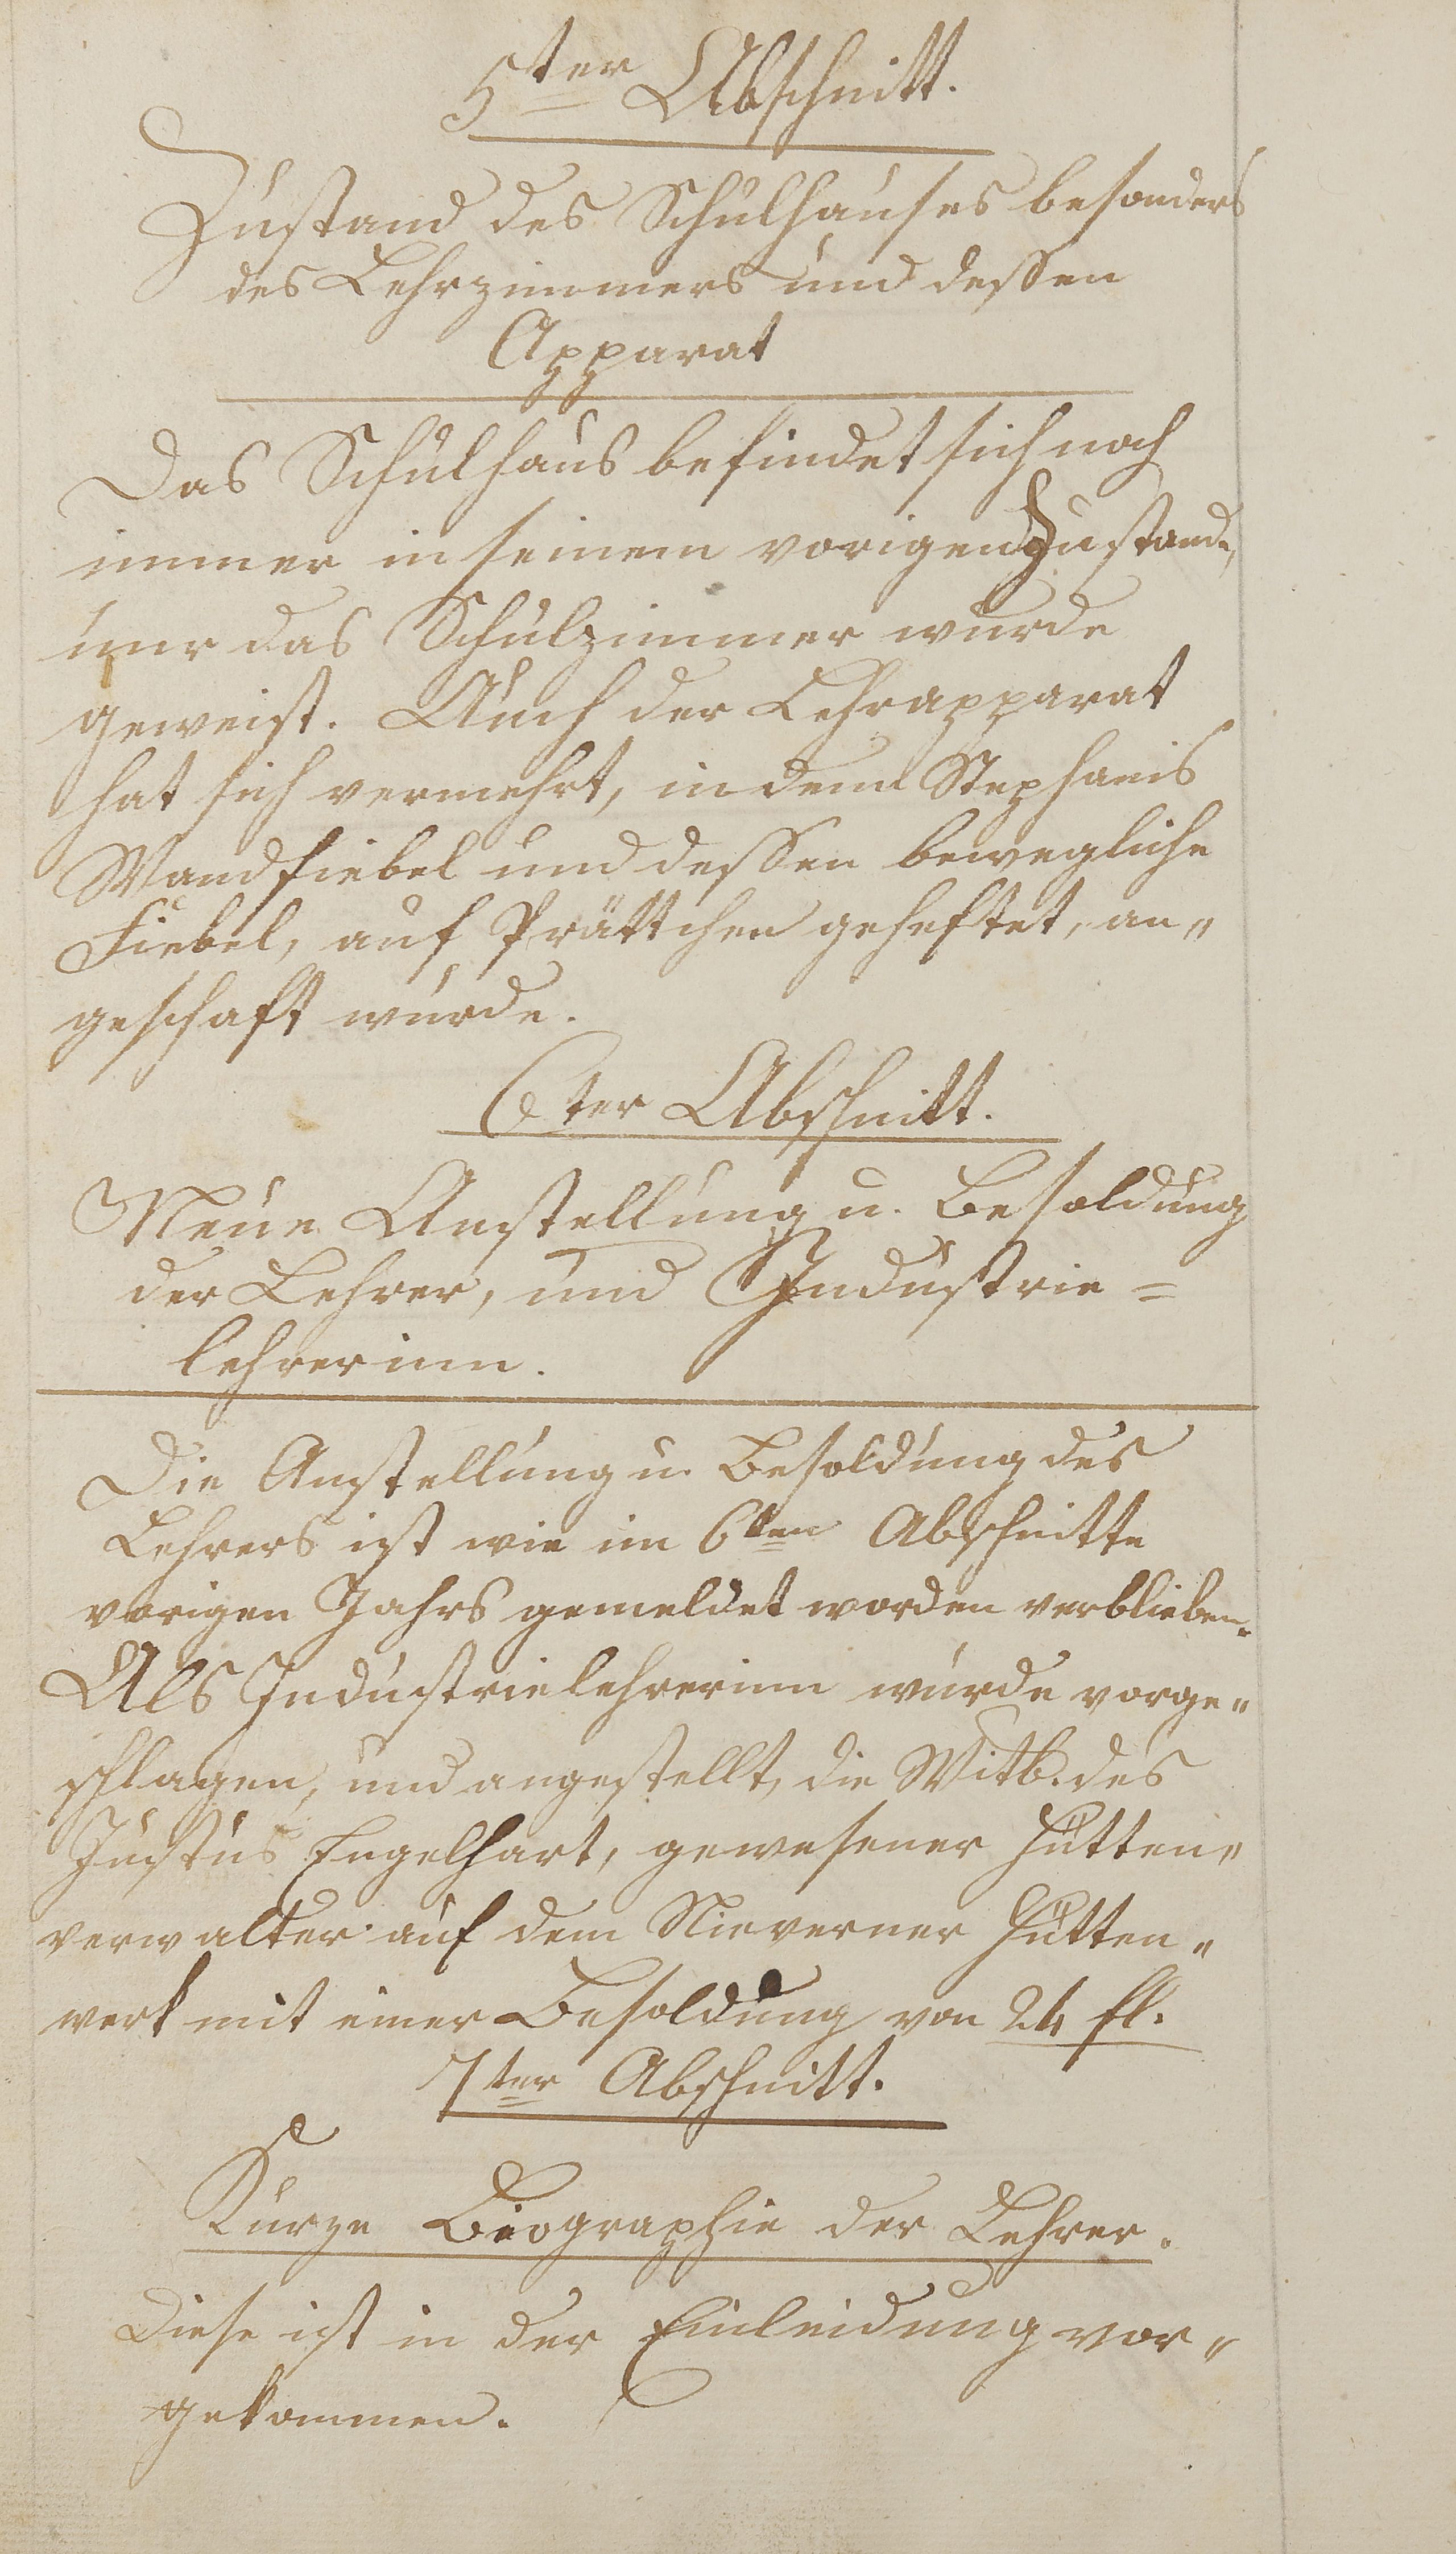 5ter Abschnitt.
Zustand des Schulhauses besonders
des Lehrzimmers und dessen
Apparat
Das Schulhaus befindet sich noch
immer in seinem vorigen Zustand,
nur das Schulzimmer wurde
geweist. Auch der Lehrapparat
hat sich vermehrt, indem Stephanis
Wandfiebel und dessen bewegliche
Fiebel, auf Prättchen geheftet, an„
geschaft wurde.
6ter Abschnitt.
Neue Anstellung u. Besoldung
der Lehrer, und Industrie=
lehrerinn.
Die Anstellung u. Besoldung des
Lehrers ist wie im 6ten Abschnitte
vorigen Jahrs gemeldet worden verblieben.
Als Industrielehrerinn wurde vorge„
schlagen, und angestellt, die Witb. des
Justus Engelhart, gewesener Hütten„
verwalter auf dem Nieverner Hütten„
werk mit einer Besoldung von 24 fl.
7ter Abschnitt.
Kurze Biographie der Lehrer.
Diese ist in der Einleidung vor„
gekommen.